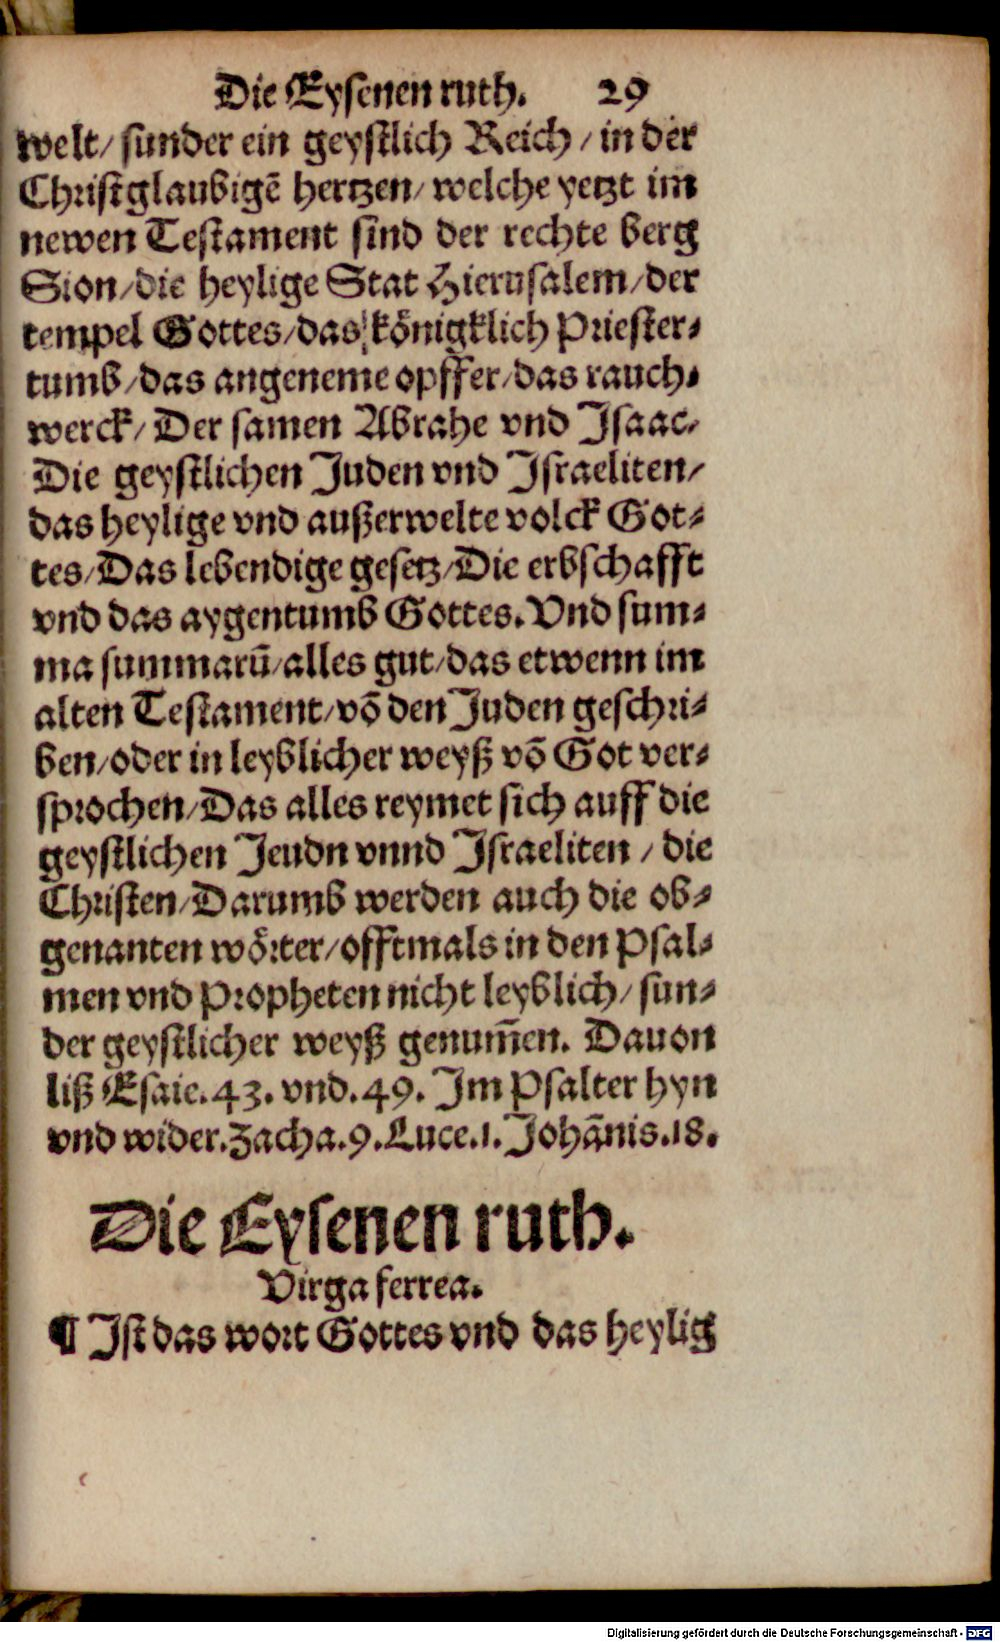 Die Eysenen ruth. 29
welt/ sunder ein geystlich Reich / in der
Christglaubigē hertzen/ welche yetzt im
newen Testament sind der rechte berg
Sion/die heylige Stat Hierusalem/der
tempel Gottes/das königklich Priester⸗
tumb/das angeneme opffer/das rauch⸗
werck/ Der samen Abrahe vnd Isaac/
Die geystlichen Juden vnd Israeliten/
das heylige vnd außerwelte volck Got⸗
tes/Das lebendige gesetz/Die erbschafft
vnd das aygentumb Gottes. Vnd sum⸗
ma summarū/alles gut/das etwenn im
alten Testament/vō den Juden geschri⸗
ben/oder in leyblicher weyß vō Got ver⸗
sprochen/Das alles reymet sich auff die
geystlichen Jeudn vnnd Israeliten / die
Christen/Darumb werden auch die ob⸗
genanten wörter/offtmals in den Psal⸗
men vnd Propheten nicht leyblich/ sun⸗
der geystlicher weyß genum̄en. Dauon
liß Esaie.43. vnd.49. Im Psalter hyn
vnd wider.Zacha.9.Luce.1.Johānis.18.
Die Eysenen ruth.
Virga ferrea.
¶ Ist das wort Gottes vnd das heylig
Digitalisierung gefördert durch die Deutsche Forschungsgemeinschaft - DFG